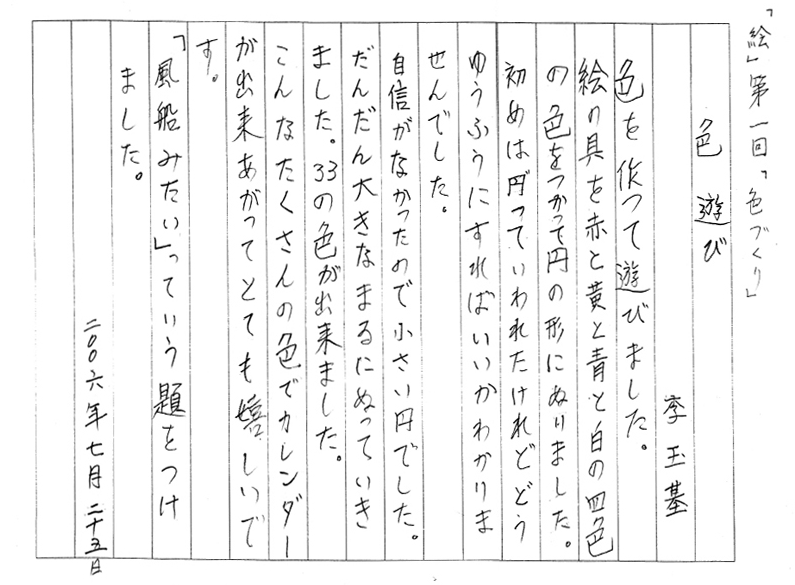 「絵」第一回「色づくり」
色遊び
李玉基
色を作って遊びました。
絵の具を赤と黄と青と白の四色
の色をつかって円の形にぬりました。
初めは円っていわれたけれどどう
ゆうふうにすればいいかわかりま
せんでした。
自信がなかったので小さい円でした。
だんだん大きなまるにぬっていき
ました。33の色が出来ました。
こんなたくさんの色でカレンダー
が出来あがってとても嬉しいで
す。
「風船みたい」っていう題をつけ
ました。
二〇〇六年七月二十五日